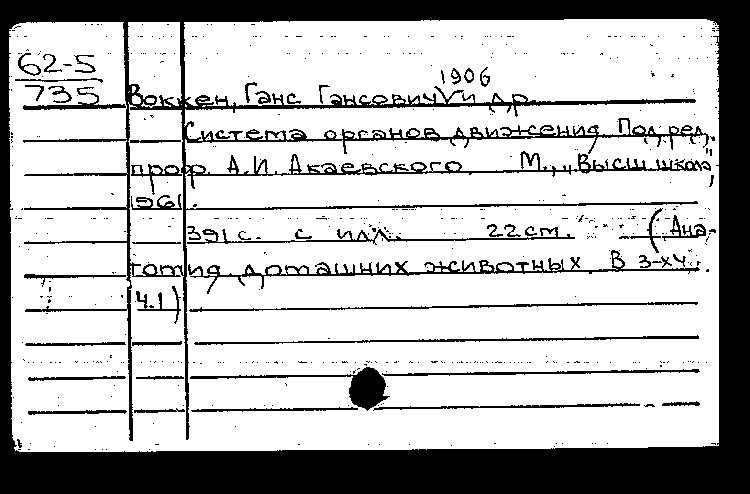 62-5
735
1906
Воккен, Ганс Гансович и др.
Система органов движения. Под ред.
проф. А.И. Акаевского. М., „Высш. школа",
1961.
391 с. с илл. 22 см. (Ана-
томия домашних животных. В 3-х ч.
Ч.1)